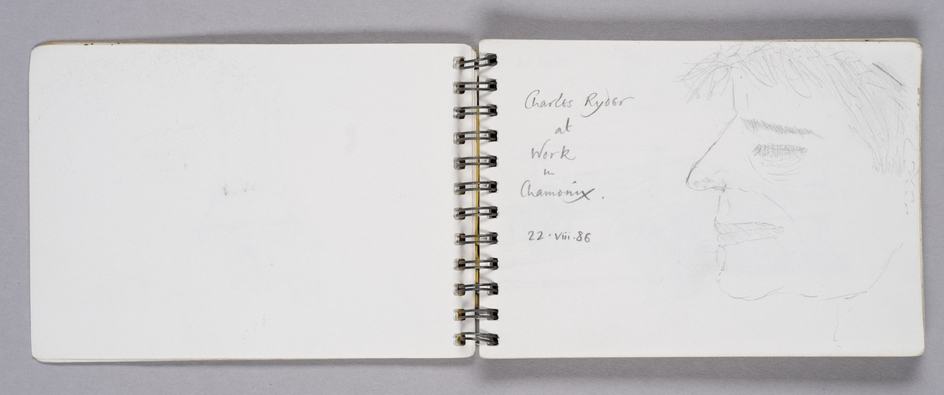 Charles Ryder
at
Work
in
Chamonix.
22·viii·86